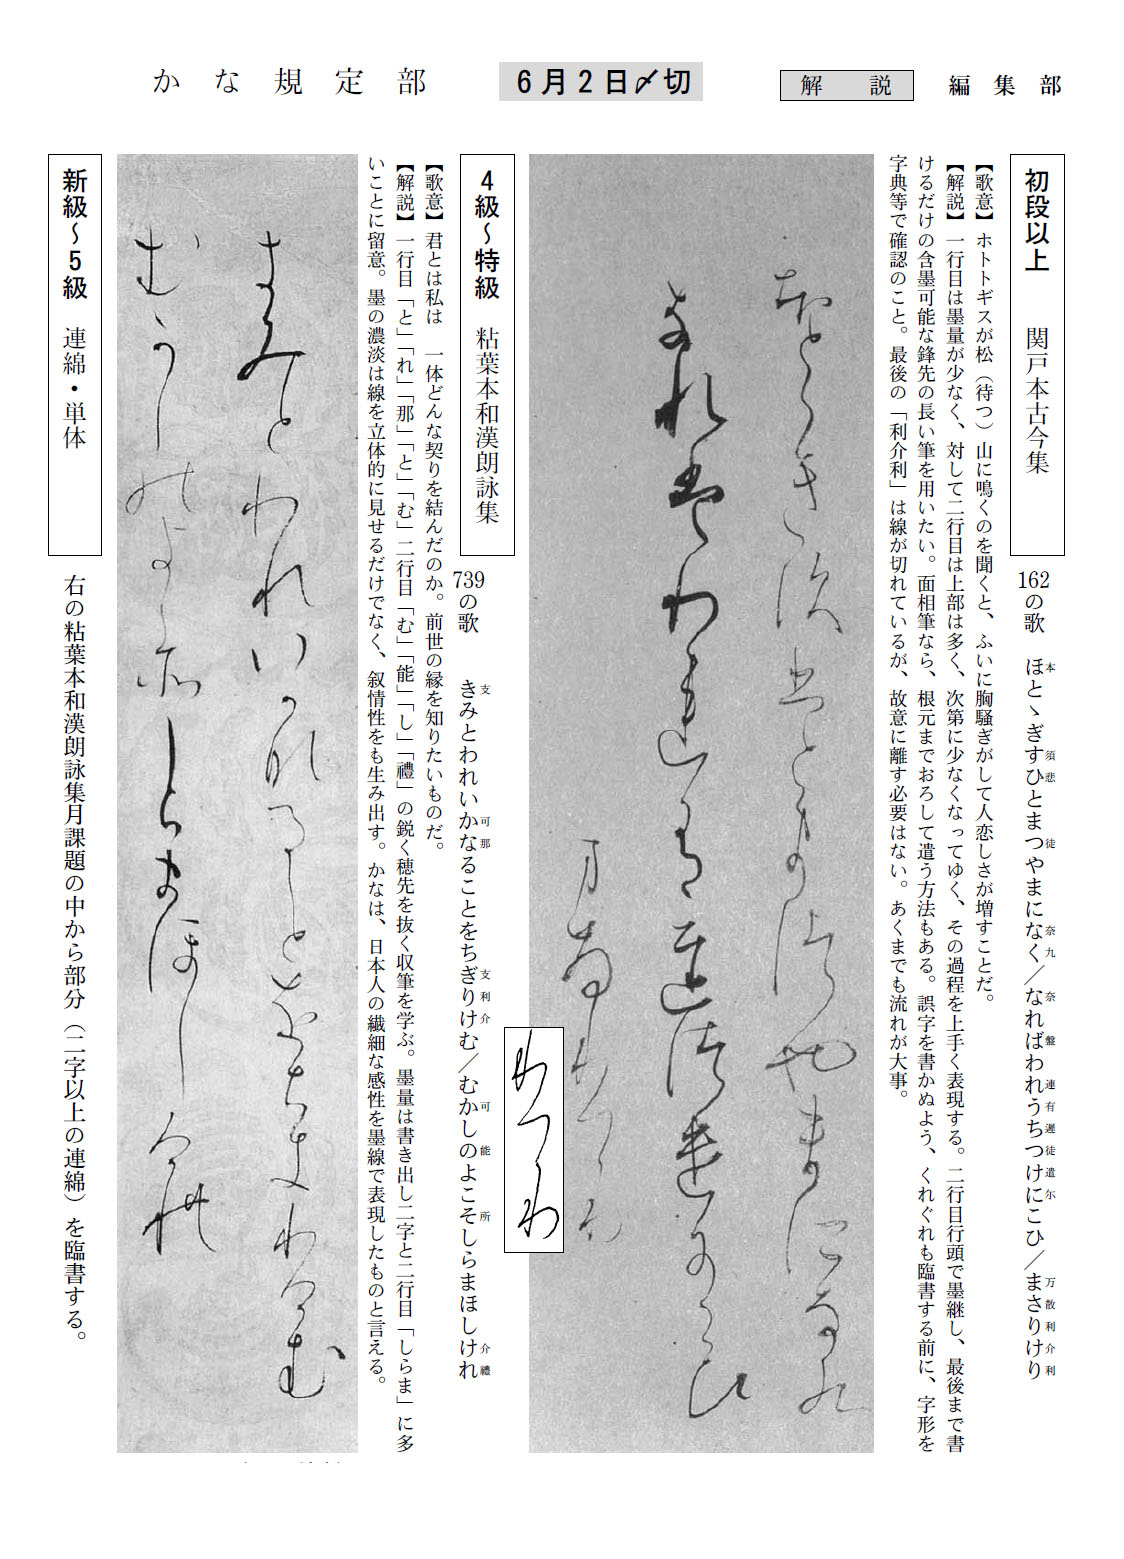 かな規定部
6月2日〆切
解説
編集部
初段以上　関戸本古今集
162の歌　ほとゝぎすひとまつやまになく／なればわれうちつけにこひ／まさりけり
本 須悲 徒 奈九 奈 盤 連有遅徒遣尓 万散利介利
【歌意】ホトトギスが松（待つ）山に鳴くのを聞くと、ふいに胸騒ぎがして人恋しさが増すことだ。
【解説】一行目は墨量が少なく、対して二行目は上部は多く、次第に少なくなってゆく、その過程を上手く表現する。二行目行頭で墨継し、最後まで書
けるだけの含墨可能な鋒先の長い筆を用いたい。面相筆なら、根元までおろして遣う方法もある。誤字を書かぬよう、くれぐれも臨書する前に、字形を
字典等で確認のこと。最後の「利介利」は線が切れているが、故意に離す必要はない。あくまでも流れが大事。
本とゝきす悲とまつやまになく
奈れ盤われ有遅徒遣尓こひ
万散利介利
4級～特級　粘葉本和漢朗詠集
739の歌　きみとわれいかなることをちぎりけむ／むかしのよこそしらまほしけれ
支 可那 支利介 可 能 所 介禮
【歌意】君とは私は　一体どんな契りを結んだのか。前世の縁を知りたいものだ。
【解説】一行目「と」「れ」「那」「と」「む」二行目「む」「能」「し」「禮」の鋭く穂先を抜く収筆を学ぶ。墨量は書き出し二字と二行目「しらま」に多
いことに留意。墨の濃淡は線を立体的に見せるだけでなく、叙情性をも生み出す。かなは、日本人の繊細な感性を墨線で表現したものと言える。
支みとわれい可那ることをち支利介む
む可し能よこ所しらまほし介禮
新級～5級　連綿・単体
右の粘葉本和漢朗詠集月課題の中から部分（二字以上の連綿）を臨書する。